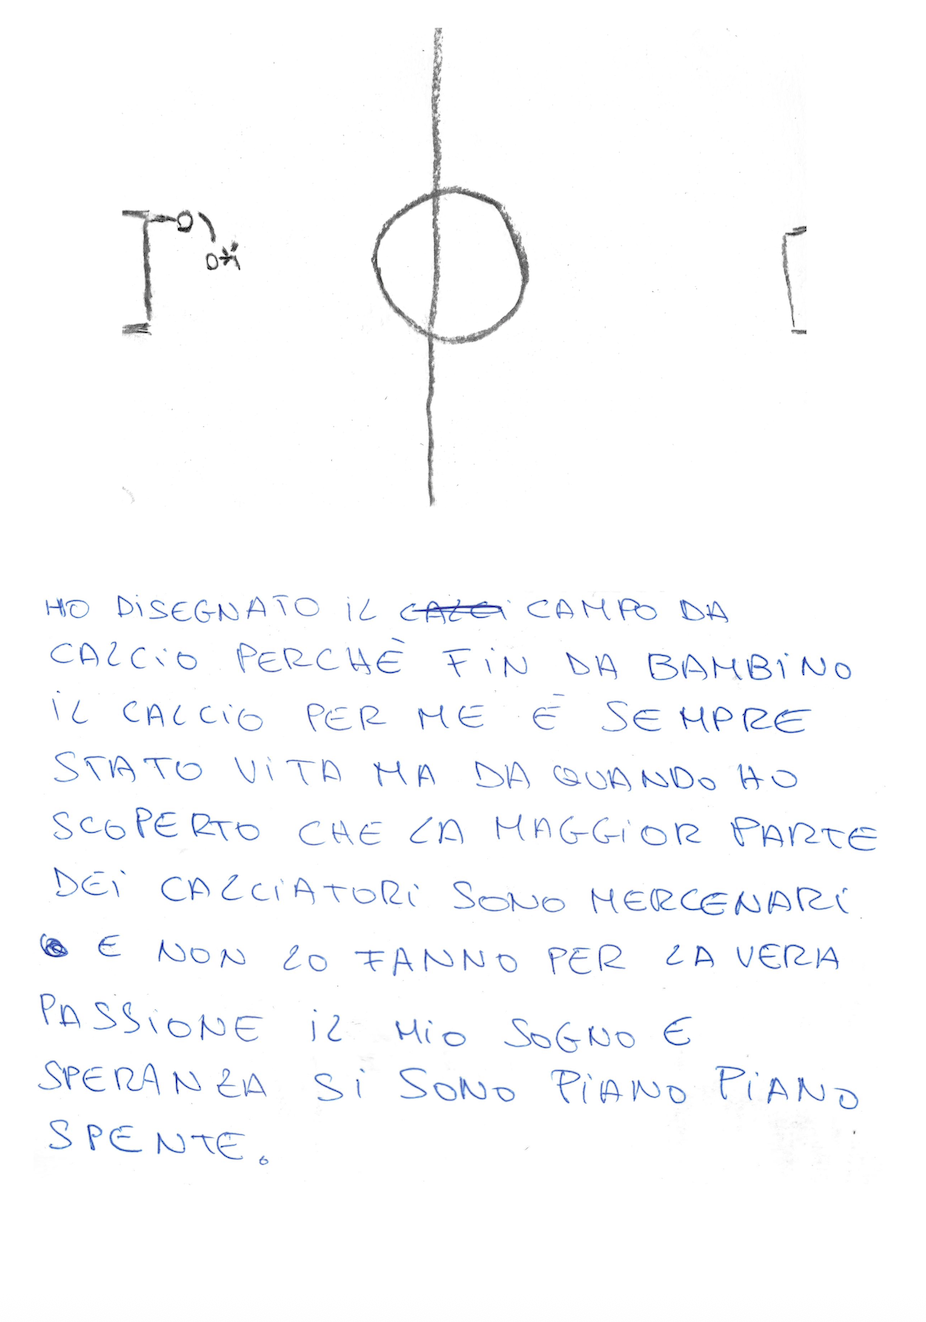 HO DISEGNATO IL CALCI CAMPO DA
CALCIO PERCHÈ FIN DA BAMBINO
IL CALCIO PER ME È SEMPRE
STATO VITA MA DA QUANDO HO
SCOPERTO CHE LA MAGGIOR PARTE
DEI CALCIATORI SONO MERCENARI
E NON LO FANNO PER LA VERA
PASSIONE IL MIO SOGNO E
SPERANZA SI SONO PIANO PIANO
SPENTE.